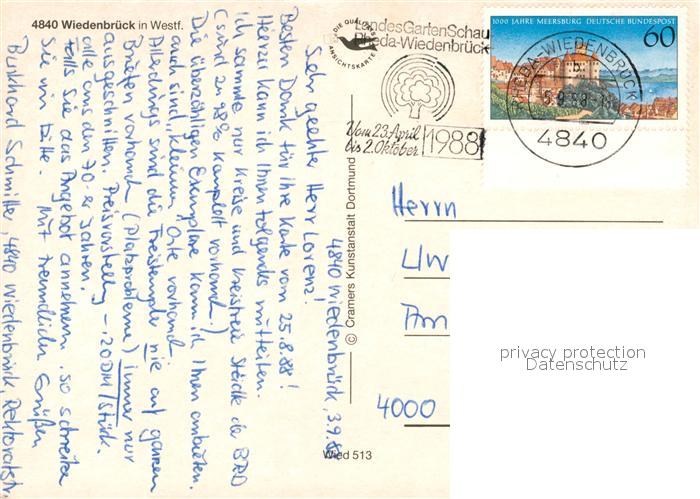 4840 Wiedenbrück in Westf.
DIE QUALITÄTS
ANSICHTSKARTE
LandesGartenSchau
Rheda-Wiedenbrück
Vom 23. April
bis 2. Oktober
1988
1000 JAHRE MEERSBURG DEUTSCHE BUNDESPOST
60
RHEDA-WIEDENBRÜCK
4840
4840 Wiedenbrück, 3.9.88
Sehr geehrter Herr Lorenz!
Besten Dank für ihre Karte vom 25.8.88!
Hierzu kann ich Ihnen folgendes mitteilen.
Ich sammle nur Kreise und kreisfreie Städte der BRD
(sind zu 98% komplett vorhanden.)
Die überzähligen Exemplare kann ich Ihnen anbieten.
auch sind kleinere Orte vorhanden.
Allerdings sind die Freistempler nie auf ganzen
Briefen vorhanden (Platzprobleme) immer nur
ausgeschnitten. Preisvorstellung -,20 DM/Stück.
alle aus den 70-er Jahren.
Falls Sie das Angebot annehmen, so schreiben
Sie mir bitte. Mit freundlichen Grüßen
Burkhard Schmitter, 4840 Wiedenbrück, Rektoratstr.
© Cramers Kunstanstalt Dortmund
Herrn
UW
Am
4000
Wied 513
privacy protection
Datenschutz